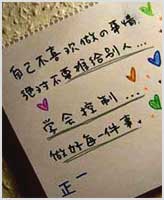 自己不喜欢做の事情
绝对不要推给别人...
学会控制....
做好每一件事
正一